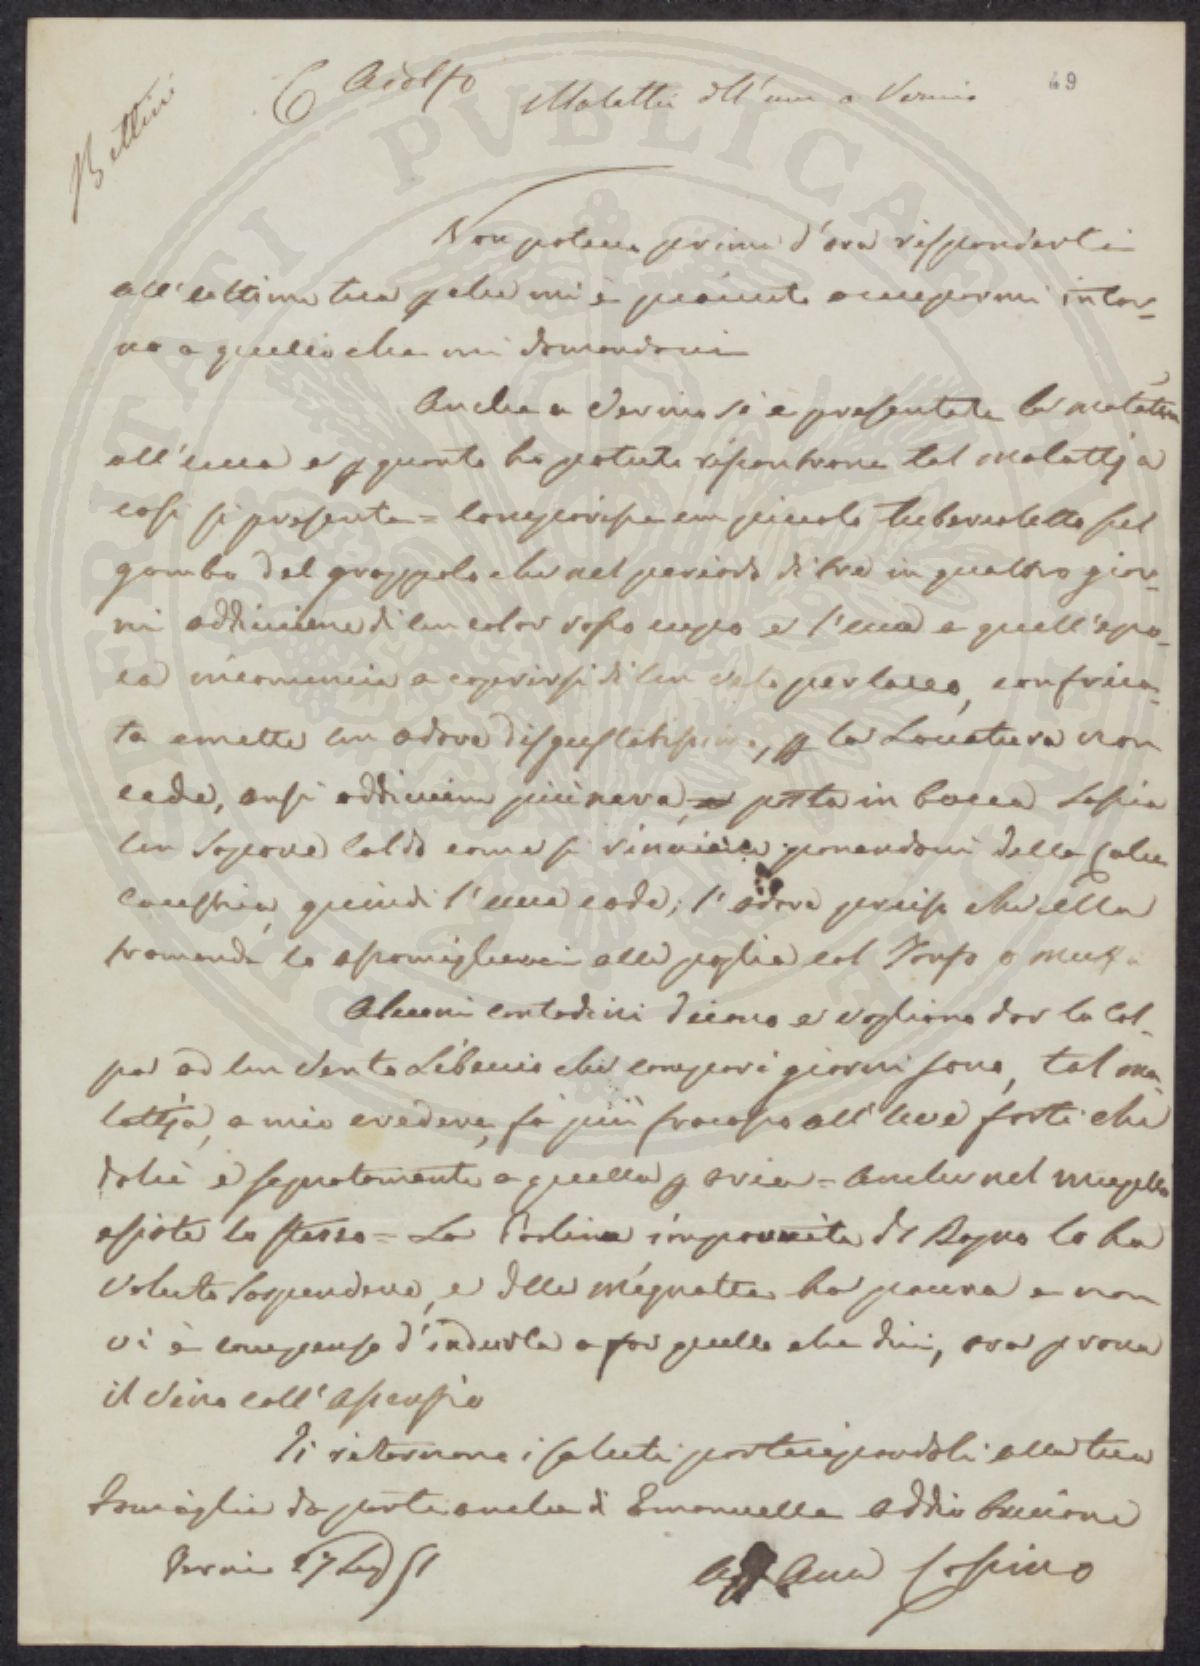 49
Bettini
C Adolfo
Malattia dell'uva a Vernio
Non potea prima d'ora risponderti
all'ultima tua p che mi è piaciuto occuparmi intor-
no a quello che mi domandavi
Anche a Vernio si è presentata la malattia
all'uva e p quanto ho potuto riscontrare tal malattja
così si presenta = Comparisce un piccolo tubercoletto sul
gambo del grappolo che nel periodo di tre in quattro gior-
ni addiviene di un color roso cupo e l'uva a quell'epo-
ca incomincia a coprirsi di un velo perlaceo, confrica-
ta emette un odore disgustatissimo, p la Lavatura non
cede, ansi addiviene più nera, posta in bocca lascia
un sapore caldo come si ponendovi della Calce
Caustica, quindi l'uva cade; l'odore preciso che ella
tramanda lo assomiglierei alla paglia col Tonfo o muffa
Alcuni contadini dicono e vogliono dar la col-
pa ad un vento Libeccio che comparì giorni sono, tal ma-
lattja, a mio credere, fà più fracasso all'uve forti che
dolci e segnatamente a quella p aria = Anche nel Mugello
esiste lo stesso = La di Bagno lo ha
voluto sospendere, e delle mignatte ha paura e non
vi è compenso d'indurla a far quello che dici, ora prova
il vino coll'Assenzio
Ti ritornono i saluti partecipandoli alla tua
Famiglia da parte anche di Emanuella addio
Vernio 17 Lug 51
Aff Cuo